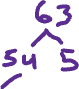 63
54 5